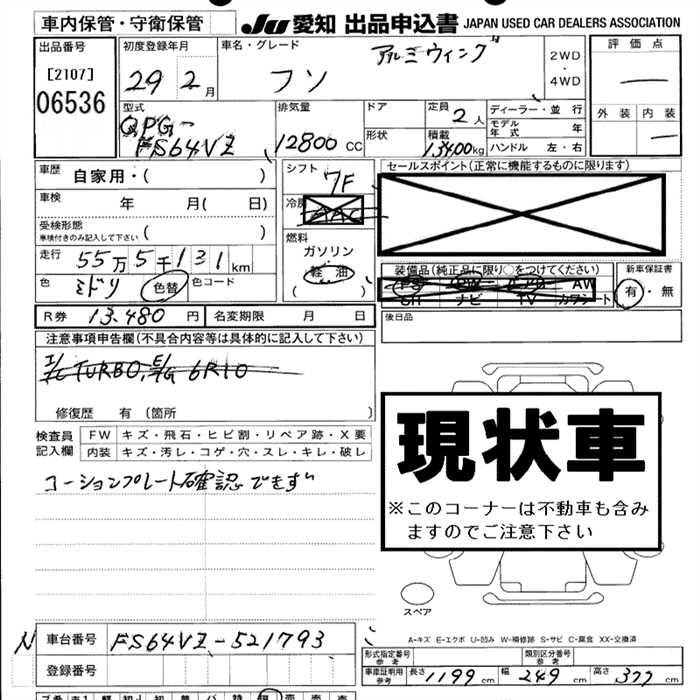 車内保管・守衛保管 JU 愛知 出品申込書 JAPAN USED CAR DEALERS ASSOCIATION
出品番号 初度登録年月 車名・グレード 評価点
[2107] 06536 29 2月 フソ アルミウィング 2WD・4WD
外装 内装
型式 排気量 ドア 定員 2人 ディーラー・並行
QPG-FS64VZ 12800cc 形状 積載 13400kg モデル年式 年
ハンドル 左・右
車歴 自家用・( ) シフト 7F セールスポイント(正常に機能するものに限ります)
車検 年 月( 日) 冷房 AAC
受検形態 車検付きのみ記入して下さい ( ) 燃料
走行 55万5千131km ガソリン
軽油
( )
色 ミドリ 色替 色コード
装備品(純正品に限り○をつけてください) 新車保証書
PS PW AW 有・無
SR ナビ TV カワシート
R券 13,480円 名変期限 月 日 後日品
注意事項申告欄(不具合内容等は具体的に記入して下さい)
I/C TURBO, E/G 6R10
修復歴 有 (箇所 )
検査員記入欄 FW キズ・飛石・ヒビ割・リペア跡・X要
内装 キズ・汚レ・コゲ・穴・スレ・キレ・破レ
コーションプレート確認できず
現状車
※このコーナーは不動車も含み
ますのでご注意下さい
スペア
A-キズ E-エクボ U-凹み W-補修跡 S-サビ C-腐食 XX-交換済
N 車台番号 FS64VZ-521793
登録番号
形式指定番号 参考 類別区分番号 参考
車庫証明用 参考 長さ 1199cm 幅 249cm 高さ 377cm